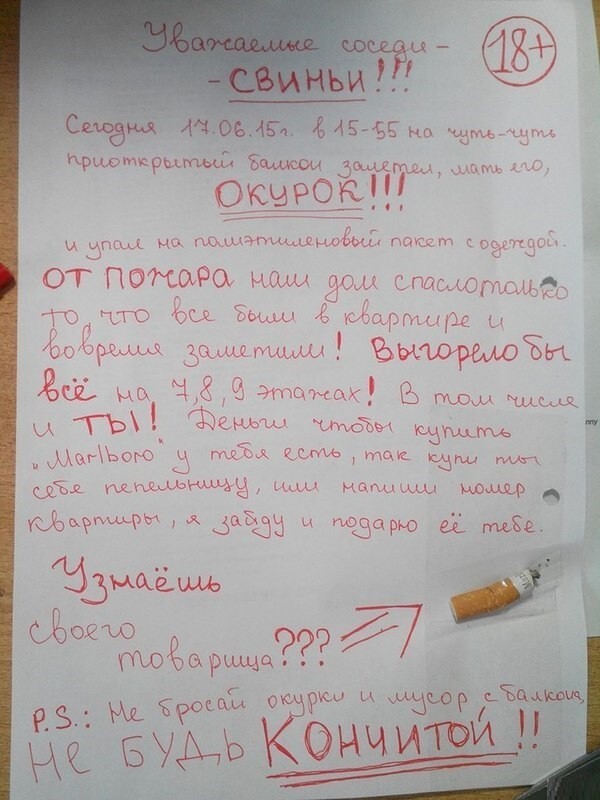 Уважаемые соседи -
- СВИНЬИ!!!
18+
Сегодня 17.06.15г. в 15-55 на чуть-чуть
приоткрытый балкон залетел, мать его,
ОКУРОК!!!
и упал на полиэтиленовый пакет с одеждой.
ОТ ПОЖАРА наш дом спасло только
то, что все были в квартире и
вовремя заметили! Выгорело бы
всё на 7,8,9 этажах! В том числе
и ТЫ! Деньги чтобы купить
„Marlboro" у тебя есть, так купи ты
себе пепельницу, или напиши номер
квартиры, я зайду и подарю её тебе.
Узнаёшь
своего
товарища???
P.S.: Не бросай окурки и мусор с балкона,
НЕ БУДЬ КОНЧИТОЙ!!